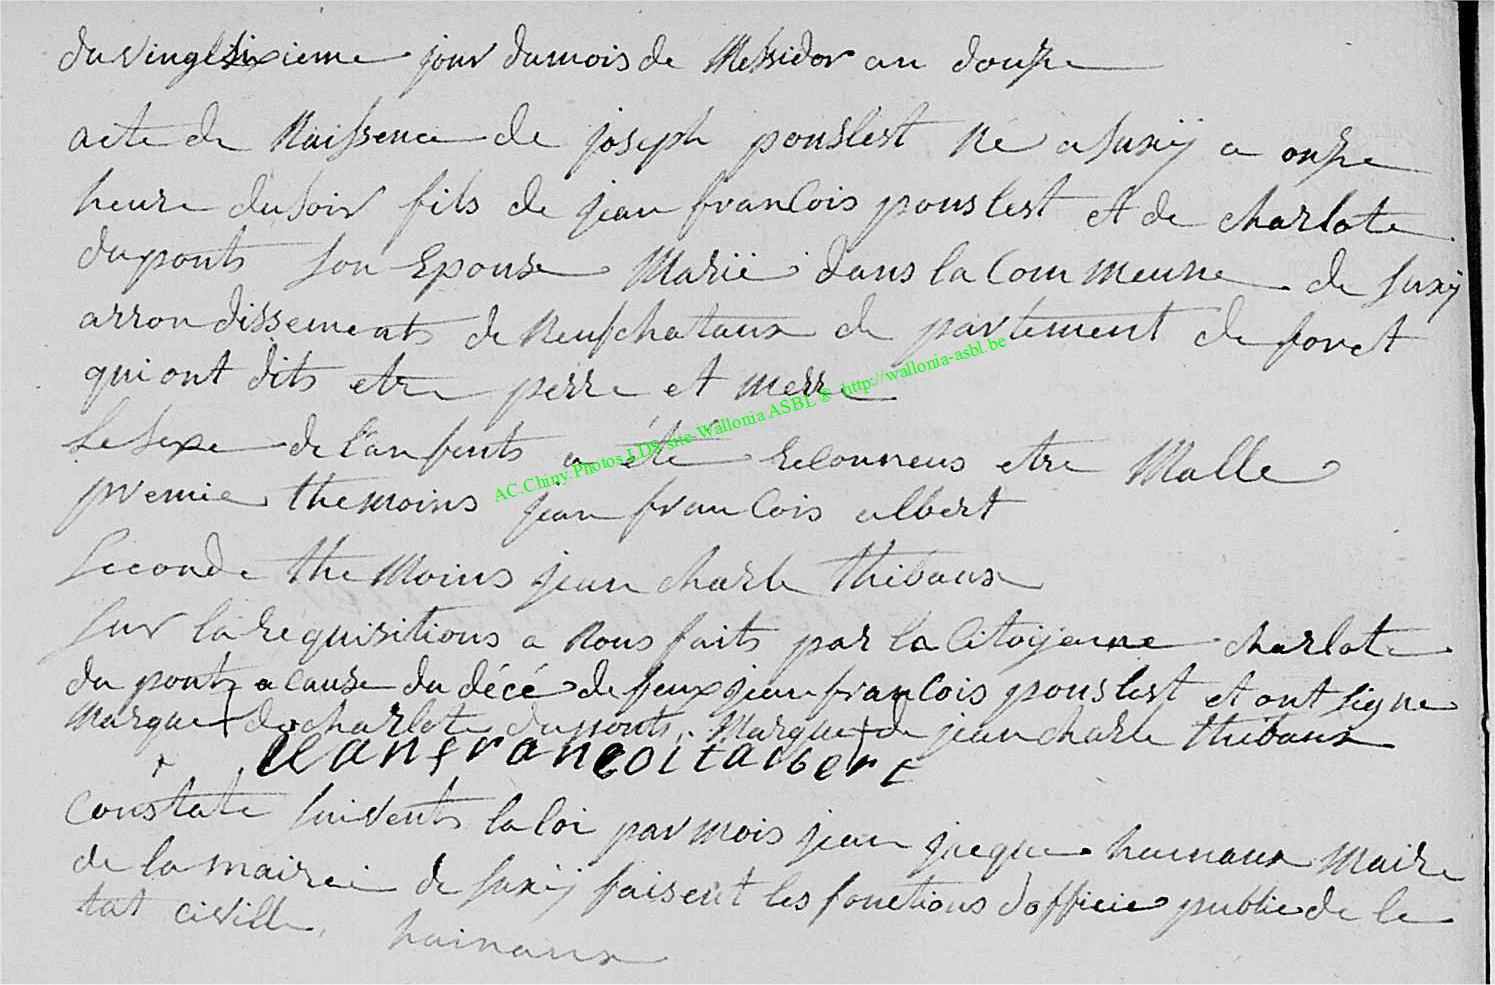 du vingt sixieme jour du mois de Messidor an douse
acte de Naissence de joseph pouslest né a Suxÿ a onse
heure du soir fils de jean francois pouslest et de charlote
duponts son Epouse Marié dans la Commeune de Suxÿ
arrondissements de Neufchataux de partement de foret
qui ont dits etre perre et merre
Le sexe de l'anfents a été reconneus etre Malle
premie themoins jean francois albert
Seconde the Moins jean charle thibaux
sur la requisitions a Nous faits par la Citoÿenne charlote
du ponts a cause du décé de feux jean francois pouslest et ont signe
Marque + de charlote duponts. Marque + de jean charle thibaux
Jeanfrancoitalbert
constate suivents la loi par mois jean jacque hainaux Maire
de la mairei de Suxÿ faisent les fonctions d'officie publie de le
tat civille, hainaux
AC.Chiny.Photos LDS site Wallonia ASBL © http://wallonia-asbl.be